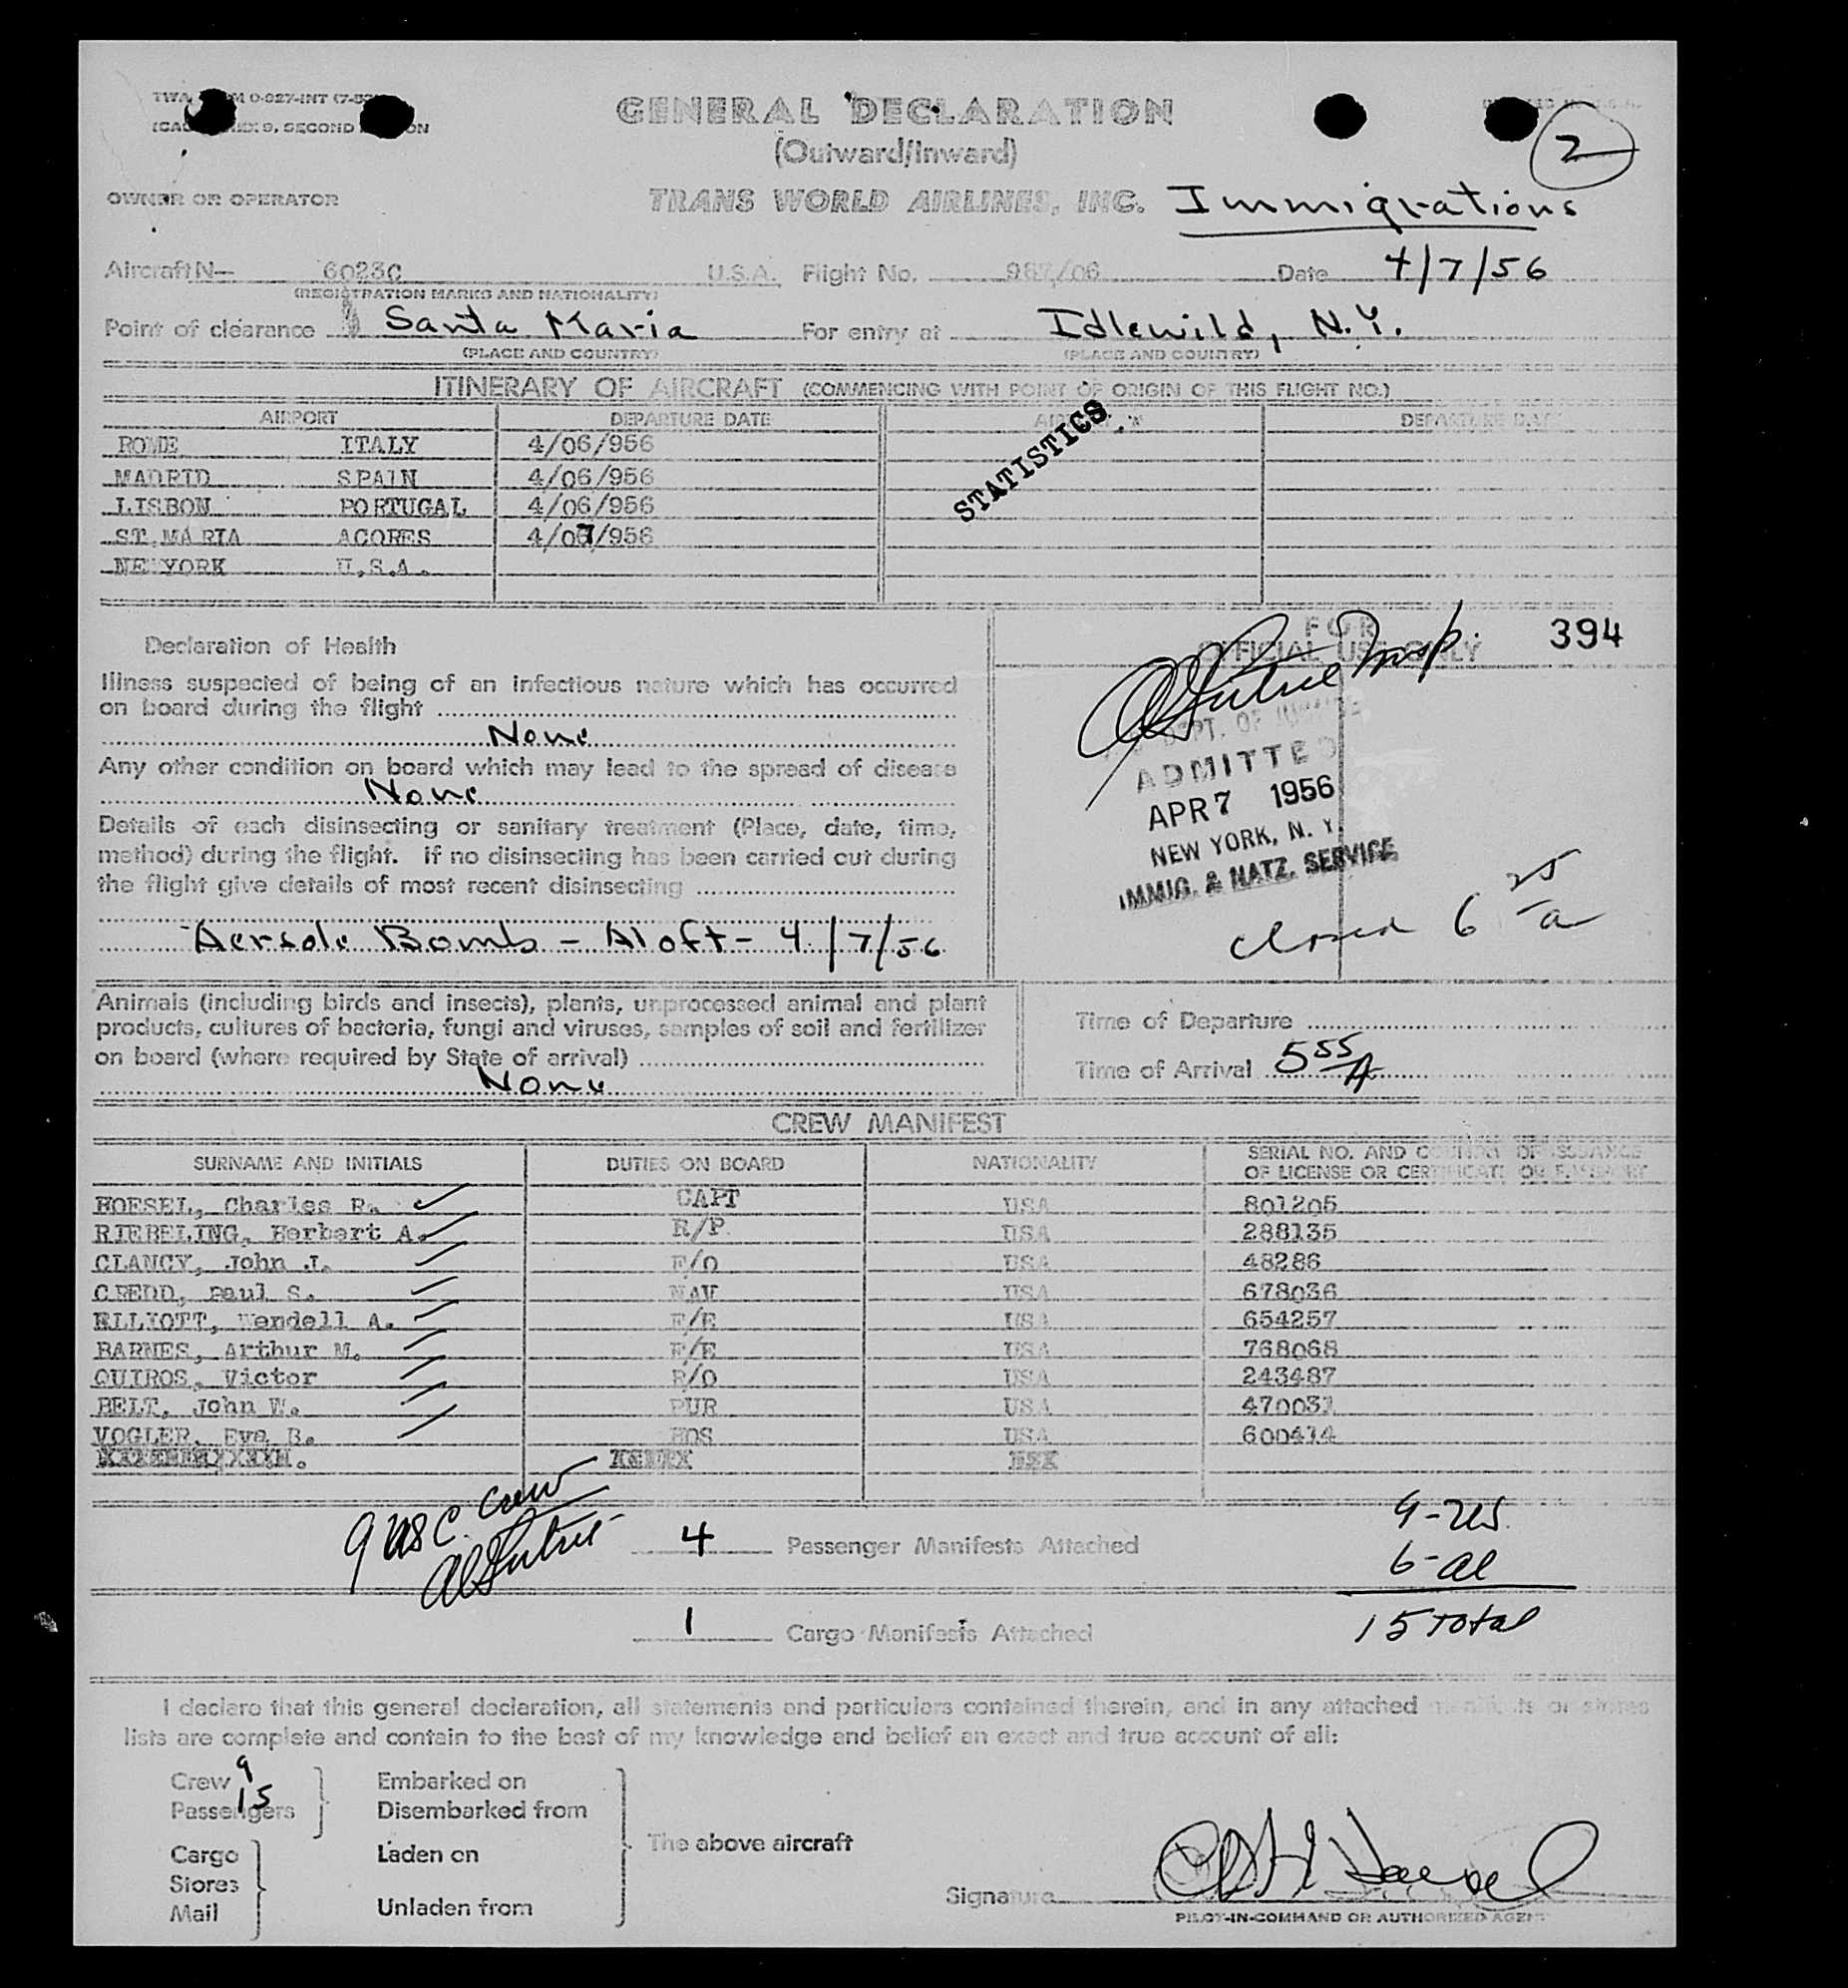 GENERAL DECLARATION
(Outward/Inward)
2
OWNER OR OPERATOR TRANS WORLD AIRLINES, INC. Immigrations
Aircraft N- 6023C U.S.A. Flight No. Date 4/7/56
(REGISTRATION MARKS AND NATIONALITY)
Point of clearance Santa Maria For entry at Idlewild, N.Y.
(PLACE AND COUNTRY) (PLACE AND COUNTRY)
ITINERARY OF AIRCRAFT (COMMENCING WITH POINT OF ORIGIN OF THIS FLIGHT NO.)
AIRPORT DEPARTURE DATE DEPARTURE
ROME ITALY 4/06/956
MADRID SPAIN 4/06/956
LISBON PORTUGAL 4/06/956
ST.MARIA ACORES 4/07/956
NEW YORK U.S.A.
STATISTICS
Declaration of Health
Illness suspected of being of an infectious nature which has occurred
on board during the flight
None
Any other condition on board which may lead to the spread of disease
None
Details of each disinsecting or sanitary treatment (Place, date, time,
method) during the flight. If no disinsecting has been carried out during
the flight give details of most recent disinsecting
Aersole Bomb - Aloft - 4/7/56
FOR
OFFICIAL USE ONLY
394
DEPT. OF JUSTICE
ADMITTED
APR 7 1956
NEW YORK, N. Y.
IMMIG. & NATZ. SERVICE
closed 6 25 a
Animals (including birds and insects), plants, unprocessed animal and plant
products, cultures of bacteria, fungi and viruses, samples of soil and fertilizer
on board (where required by State of arrival)
None
Time of Departure
Time of Arrival 5 55 A
CREW MANIFEST
SURNAME AND INITIALS DUTIES ON BOARD NATIONALITY SERIAL NO. AND COUNTRY OF ISSUANCE
OF LICENSE OR CERTIFICATE
BOESEL, Charles R. CAPT USA 801205
RIEBELING, Herbert A. R/P USA 288135
CLANCY, John J. F/O USA 48286
CREDD, Paul S. NAV USA 678036
ELLYOTT, Wendell A. F/E USA 654257
BARNES, Arthur M. F/E USA 768068
QUIROS, Victor R/O USA 243487
BELT, John W. PUR USA 470031
VOGLER, Eva B. HOS USA 600414
9 USC. Crew
4 Passenger Manifests Attached
1 Cargo Manifests Attached
9-US.
6-al
15 Total
I declare that this general declaration, all statements and particulars contained therein, and in any attached manifests or stores
lists are complete and contain to the best of my knowledge and belief an exact and true account of all:
Crew 9
Passengers 15
Cargo
Stores
Mail
Embarked on
Disembarked from
Laden on
Unladen from
The above aircraft
Signature
PILOT-IN-COMMAND OR AUTHORIZED AGENT